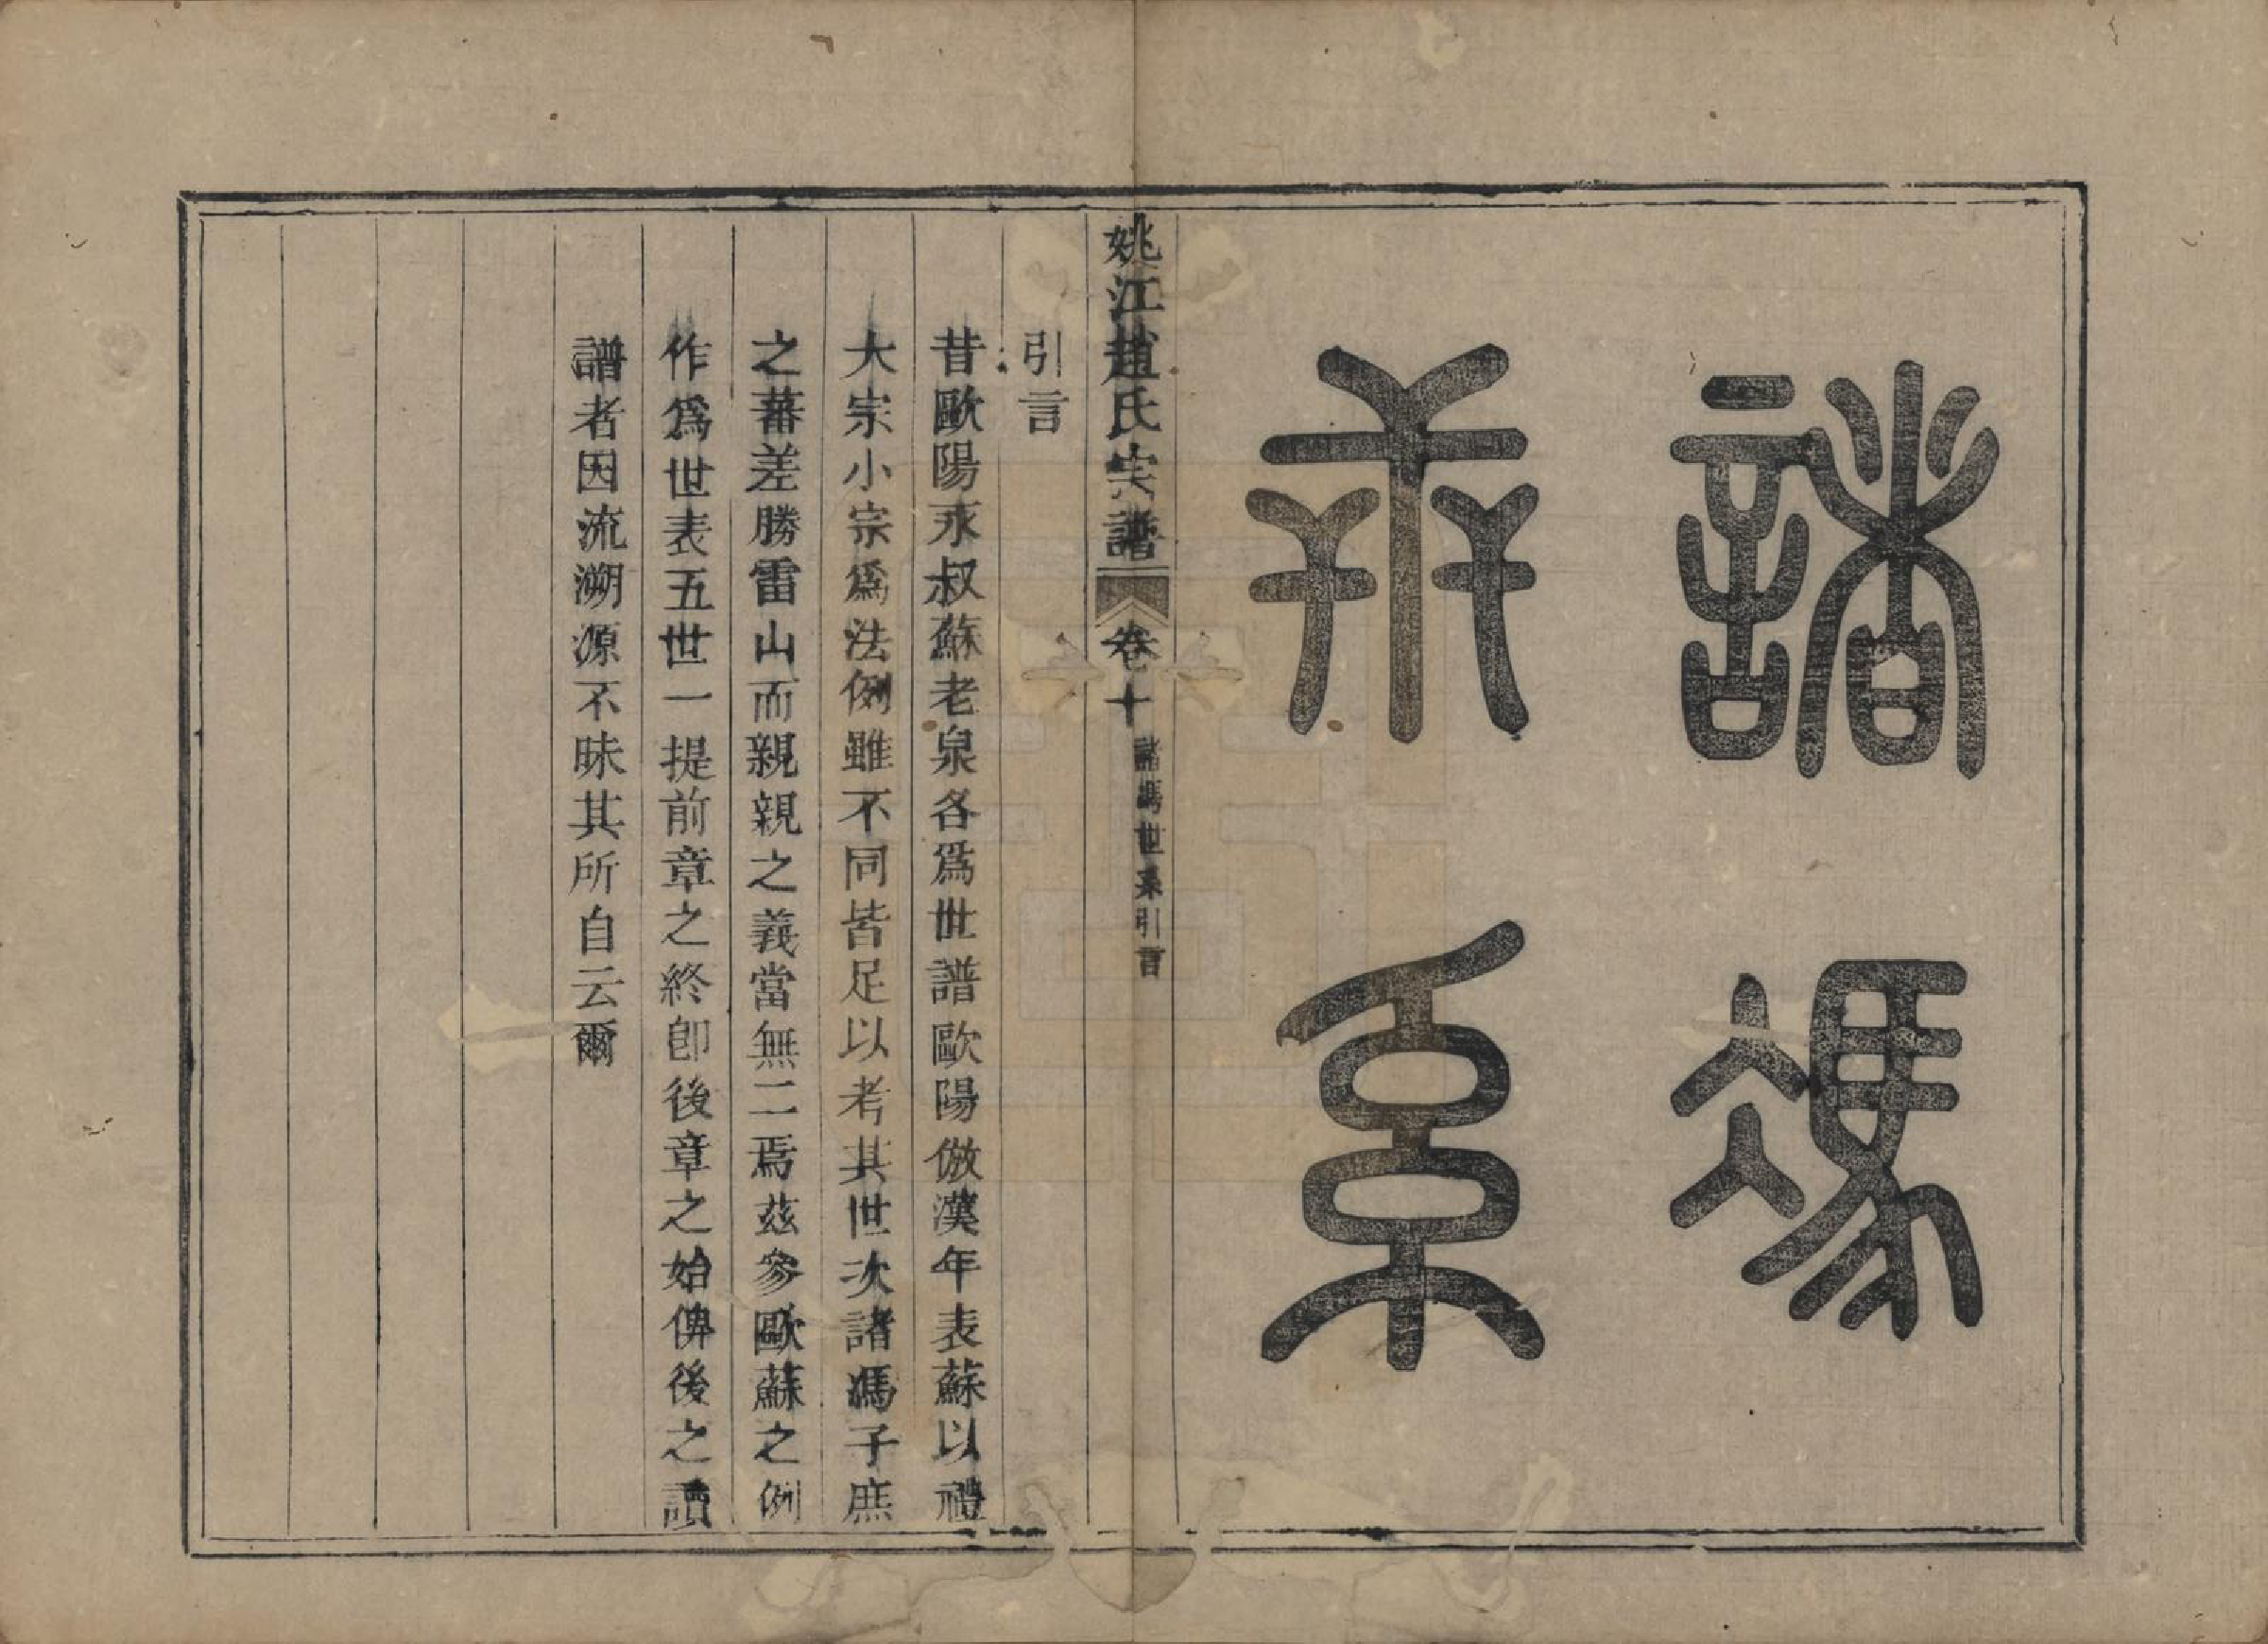 諸馮
世系
姚江趙氏宗譜 卷十 諸馮世系引言
引言
昔歐陽永叔蘇老泉各爲世譜歐陽倣漢年表蘇以禮
大宗小宗爲法例雖不同皆足以考其世次諸馮子庶
之蕃差勝雷山而親親之義當無二焉茲參歐蘇之例
作爲世表五世一提前章之終卽後章之始俾後之讀
譜者因流溯源不昧其所自云爾